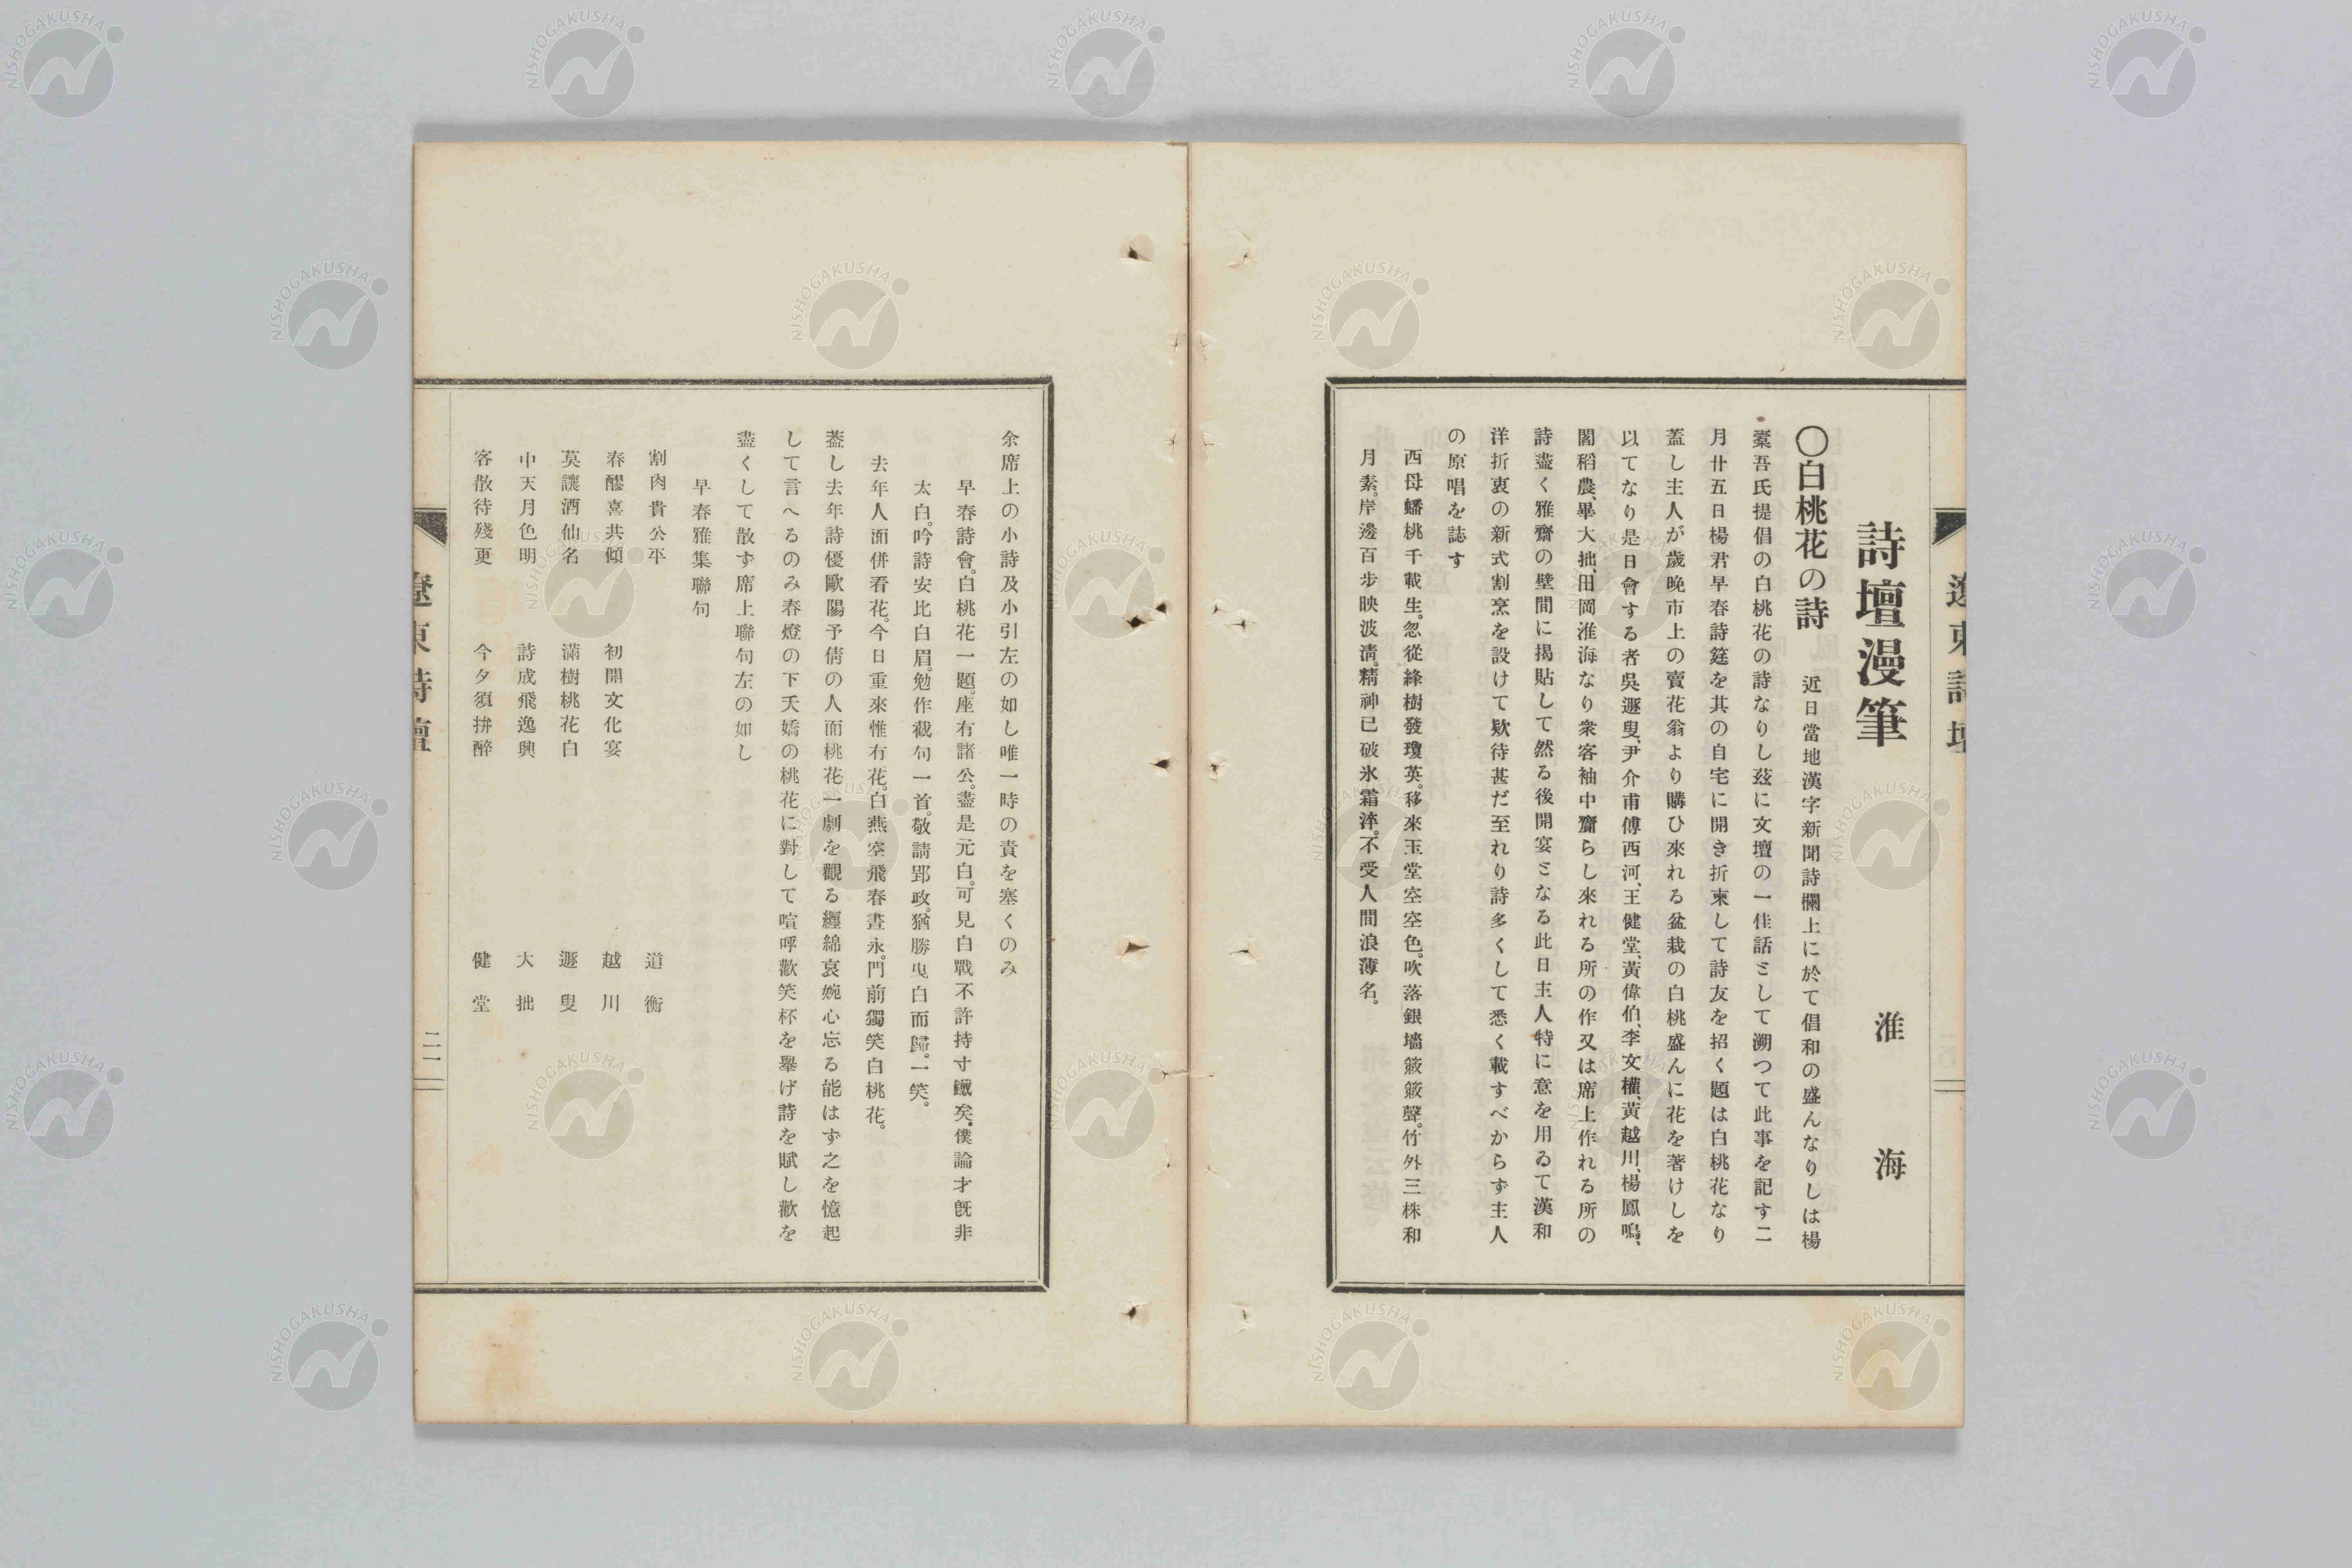 遼東詩壇
詩壇漫筆
淮海
〇白桃花の詩 近日當地漢字新聞詩欄上に於て倡和の盛んなりしは楊
槖吾氏提倡の白桃花の詩なりし玆に文壇の一佳話として溯つて此事を記す二
月廿五日楊君早春詩筵を其の自宅に開き折柬して詩友を招く題は白桃花なり
蓋し主人が歲晚市上の賣花翁より購ひ來れる盆栽の白桃盛んに花を著けしを
以てなり是日會する者吳遯叟、尹介甫傅西河、王健堂、黃偉伯、李文權、黃越川、楊鳳鳴、
閻稻農、畢大拙、田岡淮海なり衆客袖中齎らし來れる所の作又は席上作れる所の
詩盡く雅齋の壁間に揭貼して然る後開宴となる此日主人特に意を用ゐて漢和
洋折衷の新式割烹を設けて欵待甚だ至れり詩多くして悉く載すべからず主人
の原唱を誌す
西母蟠桃千載生。忽從絳樹發瓊英。移來玉堂空空色。吹落銀墻簌簌聲。竹外三株和
月素。岸邊百步映波淸。精神已破氷霜淬。不受人間浪薄名。
余席上の小詩及小引左の如し唯一時の責を塞くのみ
早春詩會。白桃花一題。座有諸公。盡是元白。可見白戰不許持寸鐵矣。僕論才旣非
太白。吟詩安比白眉。勉作截句一首。敬請郢政。猶勝曳白而歸。一笑。
去年人面併看花。今日重來惟有花。白燕空飛春晝永。門前獨笑白桃花。
蓋し去年詩優歐陽予倩の人面桃花一劇を觀る纒綿哀婉心忘る能はず之を憶起
して言へるのみ春燈の下夭嬌の桃花に對して喧呼歡笑杯を擧げ詩を賦し歡を
盡くして散ず席上聯句左の如し
早春雅集聯句
割肉貴公平 道衡
春醪喜共傾 初開文化宴 越川
莫讓酒仙名 滿樹桃花白 遯叟
中天月色明 詩成飛逸興 大拙
客散待殘更 今夕須拚醉 健堂
遼東詩壇
二一
NISHOGAKUSHA